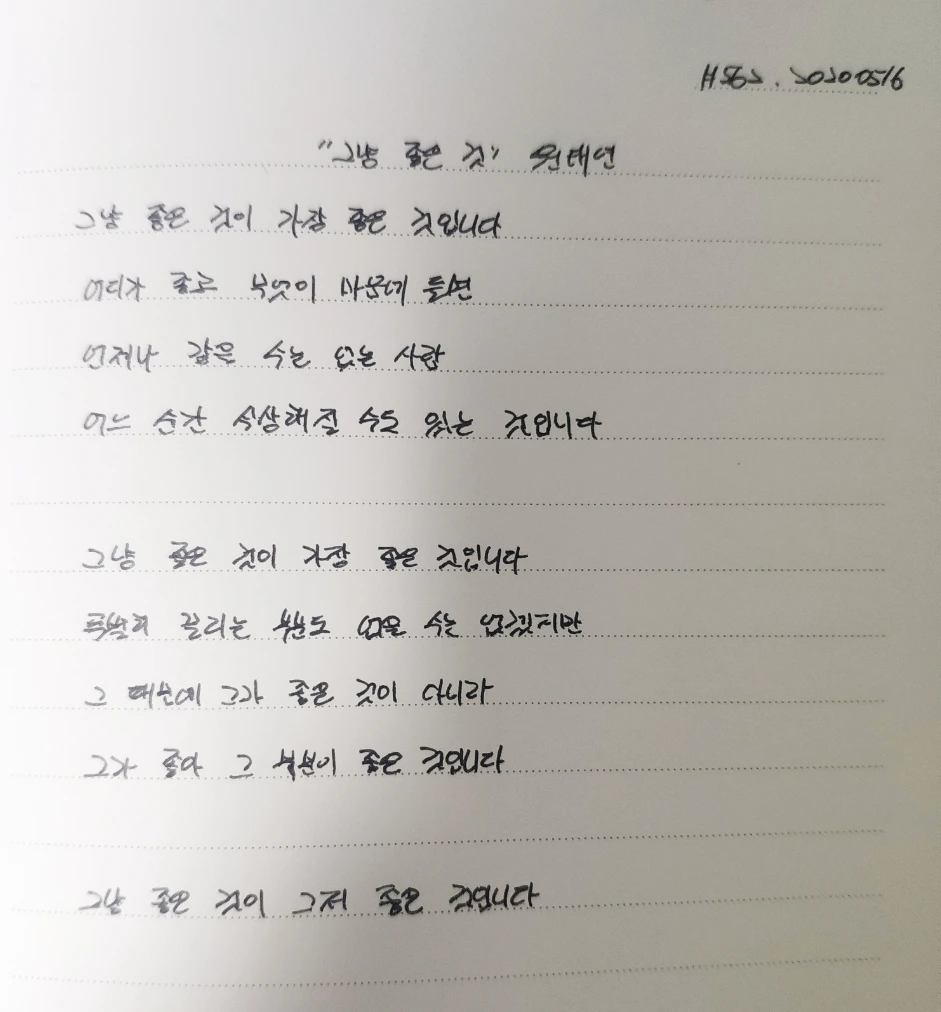 HS62. 20200516
"그냥 좋은 것" 원태연
그냥 좋은 것이 가장 좋은 것입니다
어디가 좋고 무엇이 마음에 들면
언제나 같을 수는 없는 사람
어느 순간 식상해질 수도 있는 것입니다
그냥 좋은 것이 가장 좋은 것입니다
특별히 끌리는 부분도 없을 수는 없겠지만
그 때문에 그가 좋은 것이 아니라
그가 좋아 그 부분이 좋은 것입니다
그냥 좋은 것이 그저 좋은 것입니다